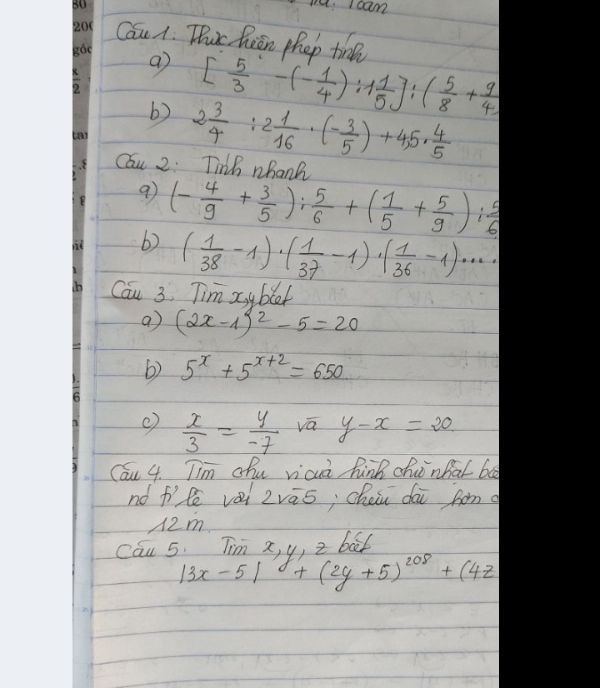 Toán
Câu 1. Thực hiện phép tính
a) [5/3 - (-1/4) : 1 1/5] : (5/8 + 9/4
b) 2 3/4 : 2 1/16 · (-3/5) + 4,5 · 4/5
Câu 2: Tính nhanh
a) (-4/9 + 3/5) : 5/6 + (1/5 + 5/9) : 5/6
b) (1/38 - 1) · (1/37 - 1) · (1/36 - 1) ....
Câu 3. Tìm x,y biết
a) (2x-1)² - 5 = 20
b) 5^x + 5^(x+2) = 650
c) x/3 = y/-7 và y - x = 20.
Câu 4. Tìm chu vi của hình chữ nhật
nó tỉ lệ với 2 và 5 ; chiều dài hơn
12 m
Câu 5. Tìm x, y, z biết
|3x - 5| + (2y + 5)^208 + (4z